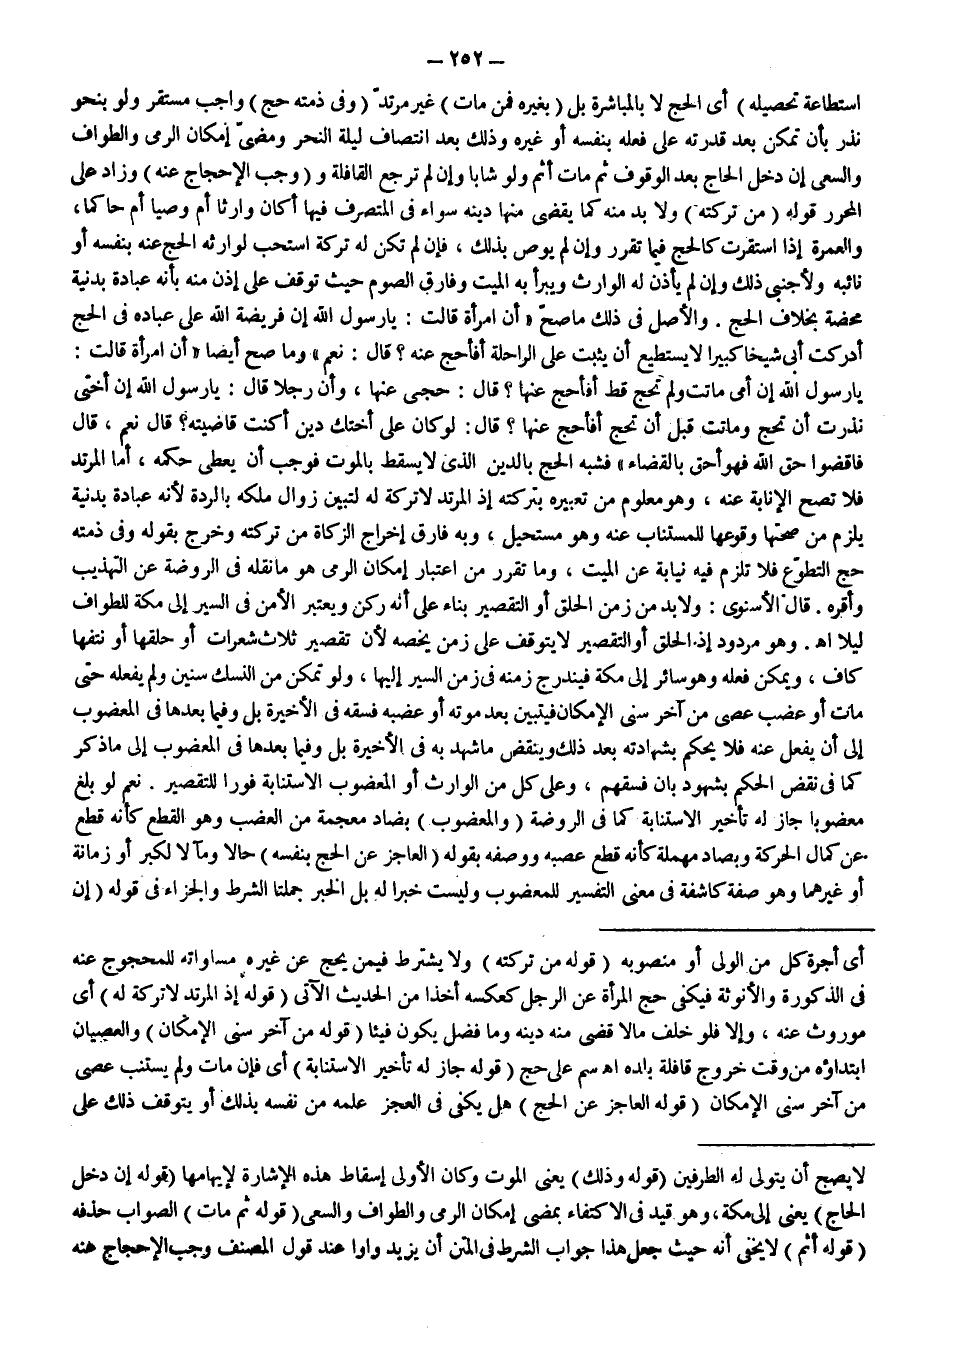 – ٢٥٢ –
استطاعة تحصيله ) أى الحج لا بالمباشرة بل ( بغيره فمن مات ) غير مرتدّ ( وفى ذمته حج ) واجب مستقر ولو بنحو
نذر بأن تمكن بعد قدرته على فعله بنفسه أو غيره وذلك بعد انتصاف ليلة النحر ومضىّ إمكان الرمى والطواف
والسعى إن دخل الحاج بعد الوقوف ثم مات أثم ولو شابا وإن لم ترجع القافلة و ( وجب الإحجاج عنه ) وزاد على
المحرر قوله ( من تركته ) ولا بد منه كما يقضى منها دينه سواء فى المتصرف فيها أكان وارثا أم وصيا أم حاكما ،
والعمرة إذا استقرت كالحج فيما تقرر وإن لم يوص بذلك ، فإن لم تكن له تركة استحب لوارثه الحج عنه بنفسه أو
نائبه ولأجنبى ذلك وإن لم يأذن له الوارث ويبرأ به الميت وفارق الصوم حيث توقف على إذن منه بأنه عبادة بدنية
محضة بخلاف الحج . والأصل فى ذلك ماصحّ « أن امرأة قالت : يارسول الله إن فريضة الله على عباده فى الحج
أدركت أبى شيخا كبيرا لايستطيع أن يثبت على الراحلة أفأحج عنه ؟ قال : نعم » وما صح أيضا « أن امرأة قالت :
يارسول الله إن أمى ماتت ولم تحج قط أفأحج عنها ؟ قال : حجى عنها ، وأن رجلا قال : يارسول الله إن أختى
نذرت أن تحج وماتت قبل أن تحج أفأحج عنها ؟ قال : لوكان على أختك دين أكنت قاضيته؟ قال نعم ، قال
فاقضوا حق الله فهو أحق بالقضاء » فشبه الحج بالدين الذى لايسقط بالموت فوجب أن يعطى حكمه ، أما المرتد
فلا تصح الإنابة عنه ، وهو معلوم من تعبيره بتركته إذ المرتد لاتركة له لتبين زوال ملكه بالردة لأنه عبادة بدنية
يلزم من صحتها وقوعها للمستناب عنه وهو مستحيل ، وبه فارق إخراج الزكاة من تركته وخرج بقوله وفى ذمته
حج التطوّع فلا تلزم فيه نيابة عن الميت ، وما تقرر من اعتبار إمكان الرمى هو مانقله فى الروضة عن التهذيب
وأقره . قال الأسنوى : ولابد من زمن الحلق أو التقصير بناء على أنه ركن ويعتبر الأمن فى السير إلى مكة للطواف
ليلا اه . وهو مردود إذ الحلق أوالتقصير لايتوقف على زمن يخصه لأن تقصير ثلاث شعرات أو حلقها أو نتفها
كاف ، ويمكن فعله وهو سائر إلى مكة فيندرج زمنه فى زمن السير إليها ، ولو تمكن من النسك سنين ولم يفعله حتى
مات أو عضب عصى من آخر سنى الإمكان فيتبين بعد موته أو عضبه فسقه فى الأخيرة بل وفيما بعدها فى المعضوب
إلى أن يفعل عنه فلا يحكم بشهادته بعد ذلك وينقض ماشهد به فى الأخيرة بل وفيما بعدها فى المعضوب إلى ماذكر
كما فى نقض الحكم بشهود بان فسقهم ، وعلى كل من الوارث أو المعضوب الاستنابة فورا للتقصير . نعم لو بلغ
معضوبا جاز له تأخير الاستنابة كما فى الروضة ( والمعضوب ) بضاد معجمة من العضب وهو القطع كأنه قطع
عن كمال الحركة وبصاد مهملة كأنه قطع عصبه ووصفه بقوله ( العاجز عن الحج بنفسه ) حالا ومآلا لكبر أو زمانة
أو غيرهما وهو صفة كاشفة فى معنى التفسير للمعضوب وليست خبرا له بل الخبر جملتا الشرط والجزاء فى قوله ( إن
أى أجرة كل من الولى أو منصوبه ( قوله من تركته ) ولا يشترط فيمن يحج عن غيره مساواته للمحجوج عنه
فى الذكورة والأنوثة فيكفى حج المرأة عن الرجل كعكسه أخذا من الحديث الآتى ( قوله إذ المرتد لاتركة له ) أى
موروث عنه ، وإلا فلو خلف مالا قضى منه دينه وما فضل يكون فيئا ( قوله من آخر سنى الإمكان ) والعصيان
ابتداؤه من وقت خروج قافلة بلده اه سم على حج ( قوله جاز له تأخير الاستنابة ) أى فإن مات ولم يستنب عصى
من آخر سنى الإمكان ( قوله العاجز عن الحج ) هل يكفى فى العجز علمه من نفسه بذلك أو يتوقف ذلك على
لايصح أن يتولى له الطرفين (قوله وذلك) يعنى الموت وكان الأولى إسقاط هذه الإشارة لإيهامها (قوله إن دخل
الحاج) يعنى إلى مكة ، وهو قيد فى الاكتفاء بمضى إمكان الرمى والطواف والسعى ( قوله ثم مات ) الصواب حذفه
( قوله أثم ) لايخفى أنه حيث جعل هذا جواب الشرط فى المتن أن يزيد واوا عند قول المصنف وجب الإحجاج عنه